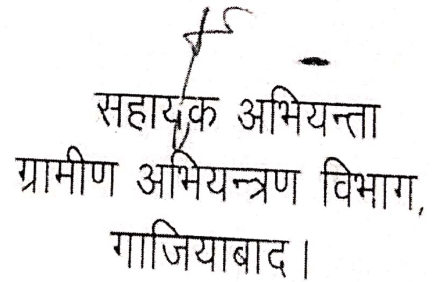 सहायक अभियन्ता
ग्रामीण अभियन्त्रण विभाग,
गाजियाबाद।